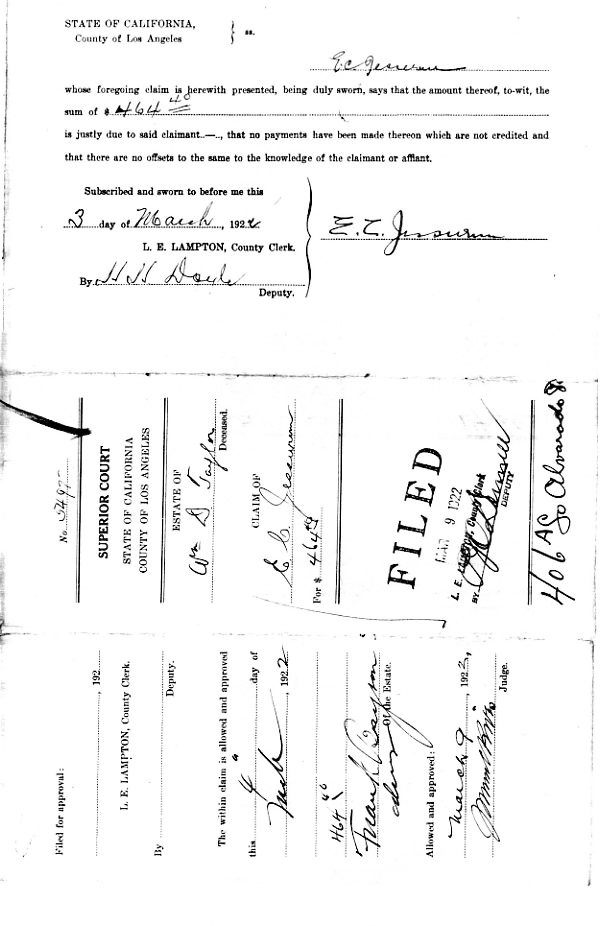 STATE OF CALIFORNIA,
County of Los Angeles
ss.
E. C. Jessurun
whose foregoing claim is herewith presented, being duly sworn, says that the amount thereof, to-wit, the
sum of $ 464 48
is justly due to said claimant..—.., that no payments have been made thereon which are not credited and
that there are no offsets to the same to the knowledge of the claimant or affiant.
Subscribed and sworn to before me this
3 day of March, 1922
L. E. LAMPTON, County Clerk.
By H H Doyle
Deputy.
E. C. Jessurun
No.
SUPERIOR COURT
STATE OF CALIFORNIA
COUNTY OF LOS ANGELES
ESTATE OF
Wm D Taylor
Deceased.
CLAIM OF
E C Jessurun
For $ 464 48
FILED
MAR 9 1922
L. E. LAMPTON, County Clerk
BY
DEPUTY
406 A So Alvarado
Filed for approval:
, 192
L. E. LAMPTON, County Clerk.
By
Deputy.
The within claim is allowed and approved
this 4 day of
March, 1922
464
Of the Estate.
Allowed and approved:
March 9, 1922,
Judge.